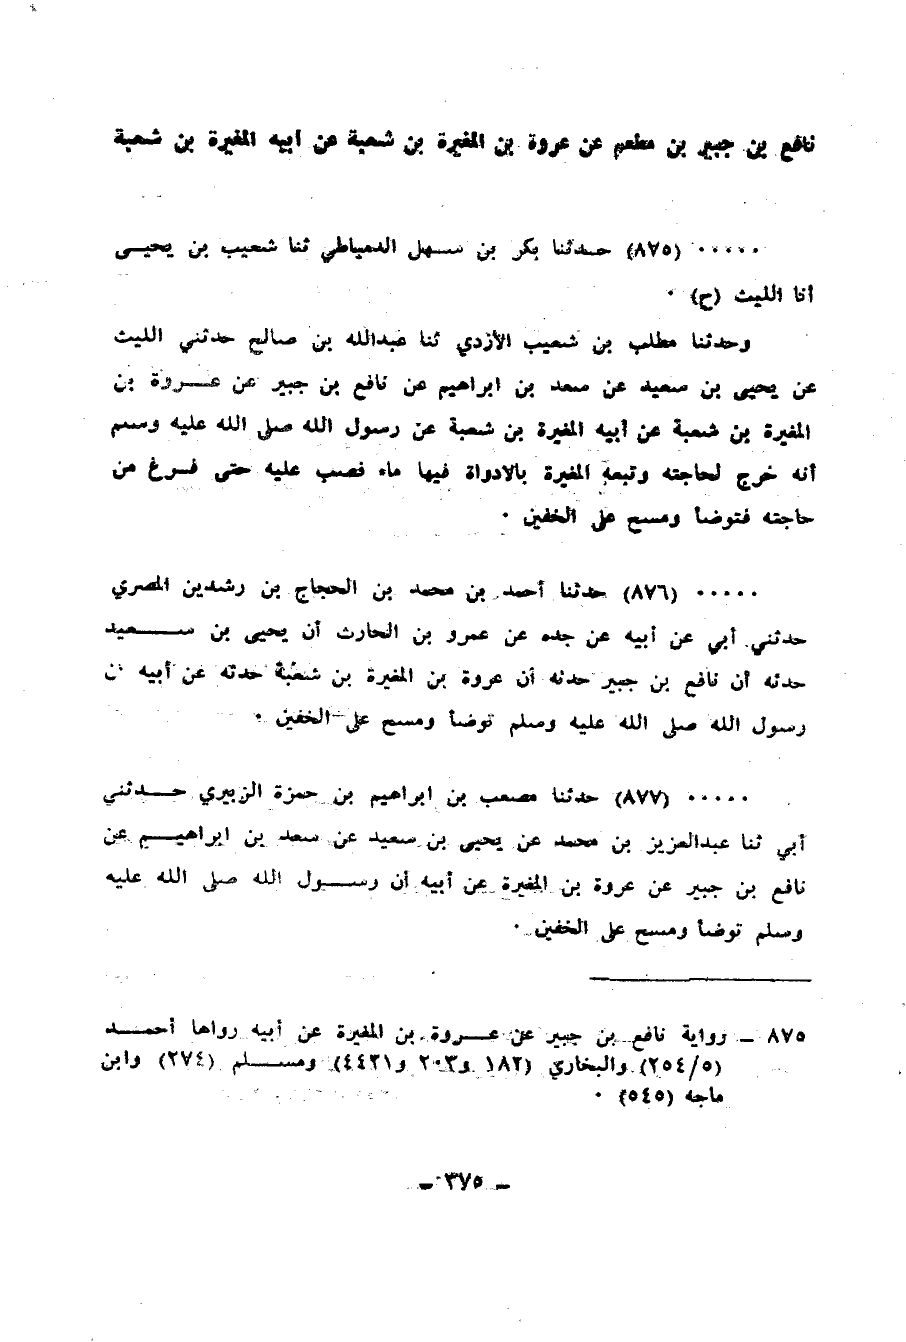 نافع بن جبير بن مطعم عن عروة بن المغيرة بن شعبة عن أبيه المغيرة بن شعبة
٠٠٠٠٠ (٨٧٥) حدثنا بكر بن سهل الدمياطي ثنا شعيب بن يحيى
أنا الليث (ح) ٠
وحدثنا مطلب بن شعيب الأزدي ثنا عبدالله بن صالح حدثني الليث
عن يحيى بن سعيد عن سعد بن ابراهيم عن نافع بن جبير عن عروة بن
المغيرة بن شعبة عن أبيه المغيرة بن شعبة عن رسول الله صلى الله عليه وسلم
أنه خرج لحاجته وتبعه المغيرة بالادواة فيها ماء فصب عليه حتى فرغ من
حاجته فتوضأ ومسح على الخفين ٠
٠٠٠٠٠ (٨٧٦) حدثنا أحمد بن محمد بن الحجاج بن رشدين المصري
حدثني أبي عن أبيه عن جده عن عمرو بن الحارث أن يحيى بن سعيد
حدثه أن نافع بن جبير حدثه أن عروة بن المغيرة بن شعبة حدثه عن أبيه
رسول الله صلى الله عليه وسلم توضأ ومسح على الخفين ٠
٠٠٠٠٠ (٨٧٧) حدثنا مصعب بن ابراهيم بن حمزة الزبيري حدثني
أبي ثنا عبدالعزيز بن محمد عن يحيى بن سعيد عن سعد بن ابراهيم عن
نافع بن جبير عن عروة بن المغيرة عن أبيه أن رسول الله صلى الله عليه
وسلم توضأ ومسح على الخفين ٠
٨٧٥ ــ رواية نافع بن جبير عن عروة بن المغيرة عن أبيه رواها أحمد
(٢٥٤/٥) والبخاري (١٨٢ و٢٠٣ و٤٤٢١) ومسلم (٢٧٤) وابن
ماجه (٥٤٥) ٠
ــ ٣٧٥ ــ